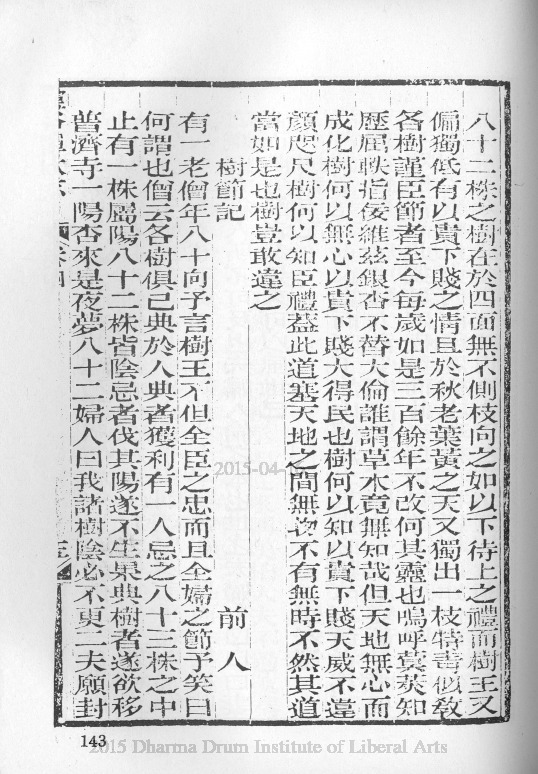 八十二株之樹在於四面無不側枝向之如以下待上之禮而樹王又
偏獨低有以貴下賤之情且於秋老葉黃之天又獨出一枝特書似敎
各樹謹臣節者至今每歲如是三百餘年不改何其靈也嗚呼蓂莢知
歷屈軼指佞維茲銀杏不替大倫誰謂草木竟無知哉但天地無心而
成化樹何以無心以貴下賤大得民也樹何以知以貴下賤天威不違
顏咫尺樹何以知臣禮葢此道塞天地之間無物不有無時不然其道
當如是也樹豈敢違之
樹節記 前人
有一老僧年八十向予言樹王不但全臣之忠而且全婦之節予笑曰
何謂也僧云各樹俱已典於人典者獲利有一人忌之八十三株之中
止有一株屬陽八十二株皆陰忌者伐其陽遂不生果典樹者遂欲移
普濟寺一陽杏來是夜夢八十二婦人曰我諸樹陰必不更二夫願封
五
2015-04-
143
2015 Dharma Drum Institute of Liberal Arts